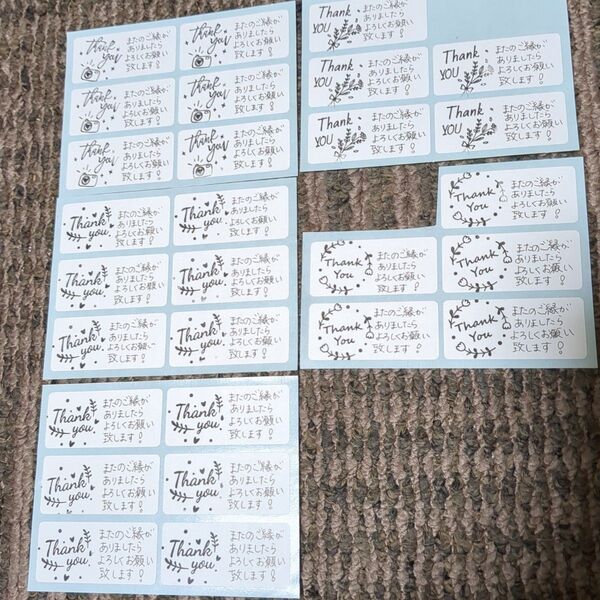 thank
you
またのご縁が
ありましたら
よろしくお願い
致します!
thank
you
またのご縁が
ありましたら
よろしくお願い
致します!
thank
you
またのご縁が
ありましたら
よろしくお願い
致します!
thank
you
またのご縁が
ありましたら
よろしくお願い
致します!
thank
you
またのご縁が
ありましたら
よろしくお願い
致します!
thank
you
またのご縁が
ありましたら
よろしくお願い
致します!
Thank
YOU
またのご縁が
ありましたら
よろしくお願い
致します!
Thank
YOU
またのご縁が
ありましたら
よろしくお願い
致します!
Thank
YOU
またのご縁が
ありましたら
よろしくお願い
致します!
Thank
YOU
またのご縁が
ありましたら
よろしくお願い
致します!
Thank
YOU
またのご縁が
ありましたら
よろしくお願い
致します!
Thank
you
またのご縁が
ありましたら
よろしくお願い
致します!
Thank
you
またのご縁が
ありましたら
よろしくお願い
致します!
Thank
you
またのご縁が
ありましたら
よろしくお願い
致します!
Thank
you
またのご縁が
ありましたら
よろしくお願い
致します!
Thank
you
またのご縁が
ありましたら
よろしくお願い
致します!
Thank
you
またのご縁が
ありましたら
よろしくお願い
致します!
Thank
You
またのご縁が
ありましたら
よろしくお願い
致します!
Thank
You
またのご縁が
ありましたら
よろしくお願い
致します!
Thank
You
またのご縁が
ありましたら
よろしくお願い
致します!
Thank
You
またのご縁が
ありましたら
よろしくお願い
致します!
Thank
You
またのご縁が
ありましたら
よろしくお願い
致します!
Thank
you
またのご縁が
ありましたら
よろしくお願い
致します!
Thank
you
またのご縁が
ありましたら
よろしくお願い
致します!
Thank
you
またのご縁が
ありましたら
よろしくお願い
致します!
Thank
you
またのご縁が
ありましたら
よろしくお願い
致します!
Thank
you
またのご縁が
ありましたら
よろしくお願い
致します!
Thank
you
またのご縁が
ありましたら
よろしくお願い
致します!